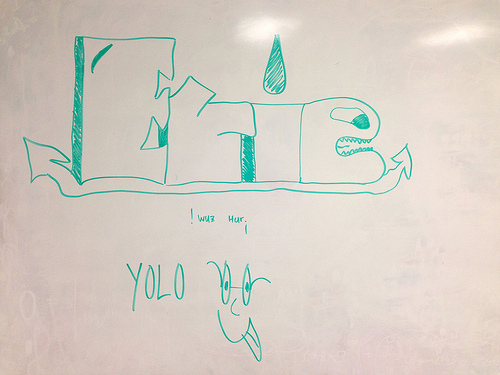 Eric
! wuz Hur¡
YOLO